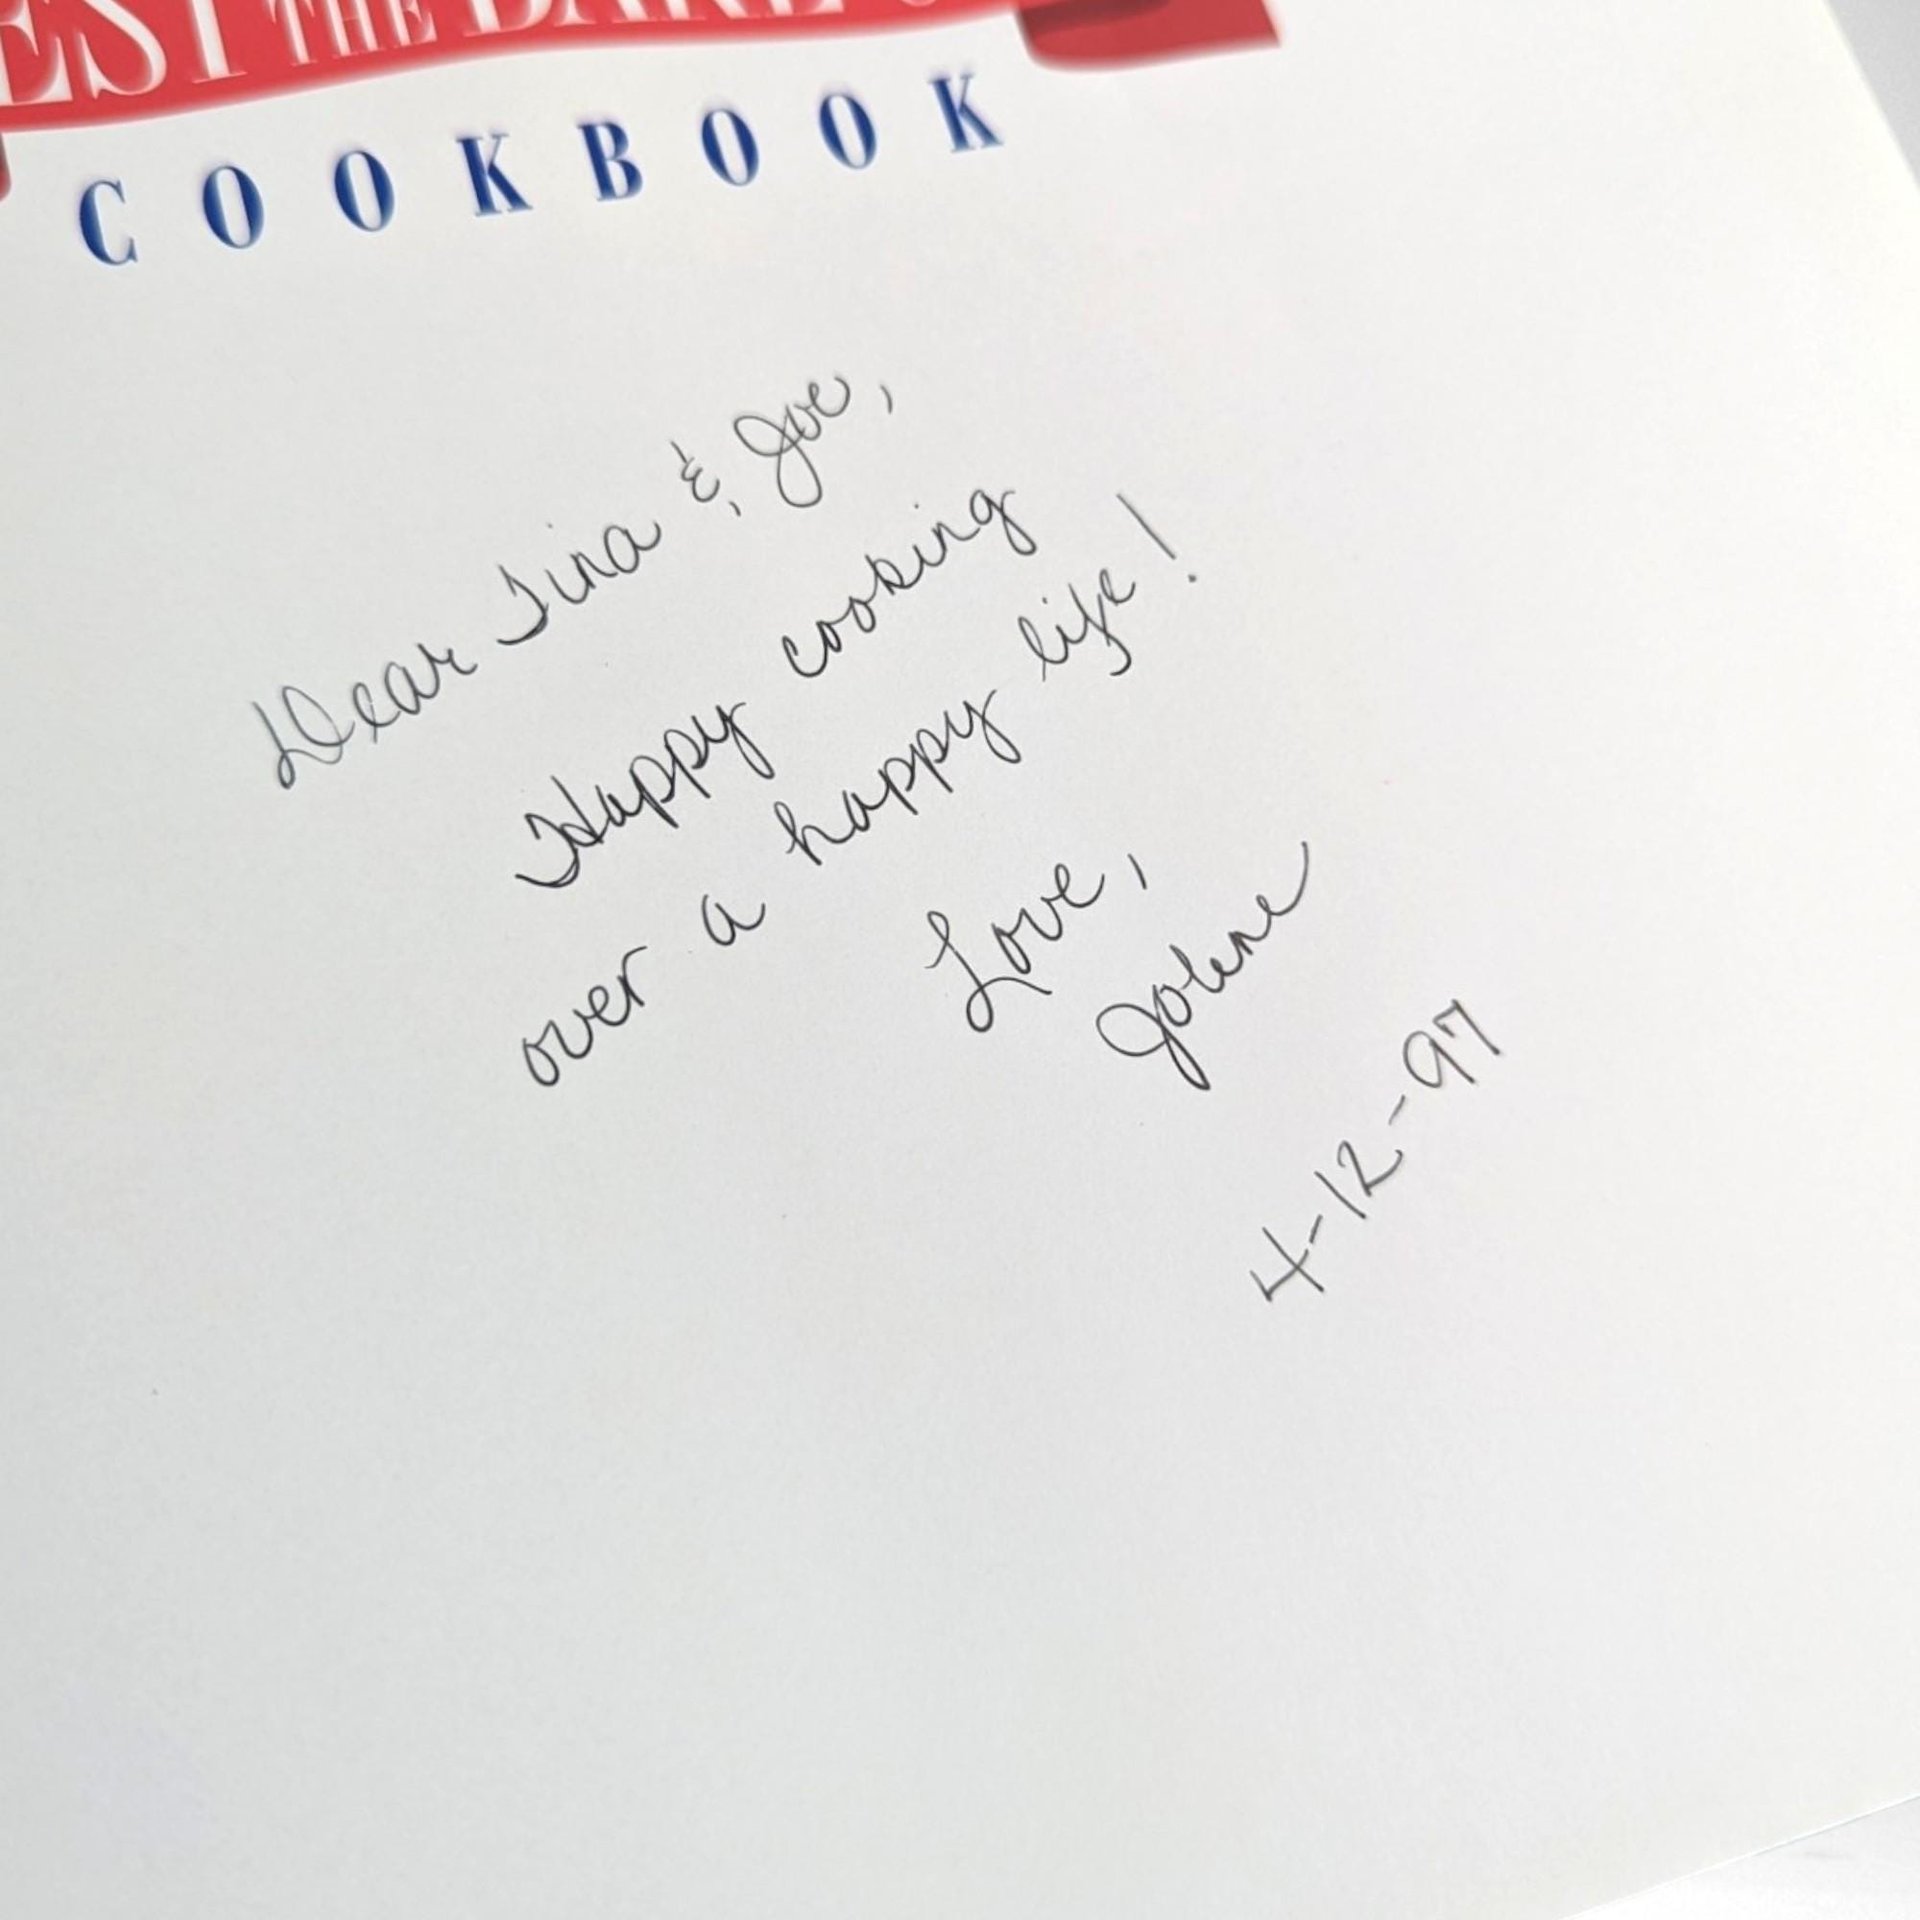 EST THE BAKE
COOKBOOK
Dear Tina &, Joe,
Happy cooking
over a happy life!
Love,
Jolene
4-12-97